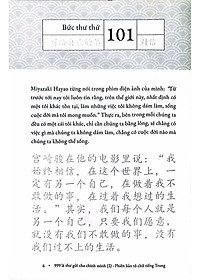 Bức thư thứ
101
Miyazaki Hayao từng nói trong phim điện ảnh của mình: "Từ
trước tới nay tôi luôn tin rằng, trên thế giới này, nhất định có
một tôi khác tồn tại, làm những việc tôi không dám làm, sống
cuộc đời mà tôi mong muốn." Thực ra, bên trong mỗi chúng ta
đều có một cái tôi khác, chỉ cần chúng ta bằng lòng, sẽ chẳng có
việc gì mà chúng ta không dám làm, chẳng có cuộc đời nào mà
chúng ta không thể sống.
宫崎骏在他的电影里说："我
始终相信，在这个世界上，一
定有另一个自己，在做着我不
敢做的事，在过着我想过的生
活。"其实，我们每个人就是
另一个自己，只要我们愿意，
就没有我们不敢做的事，没有
我们过不上的生活。
6 • 999 lá thư gửi cho chính mình (2) - Phiên bản tô chữ tiếng Trung